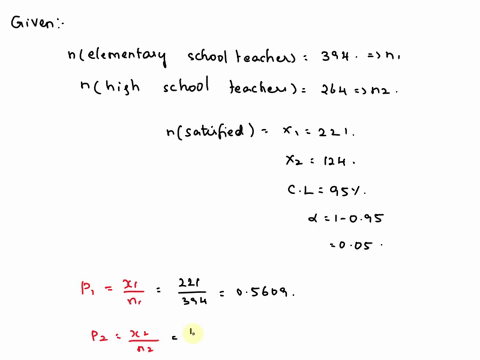 Given:-
n(elementary school teachers) = 394 => n₁
n(high school teachers) = 264 => n2.
n(satisfied) = x₁ = 221.
x₂ = 124.
C.L = 95%.
α = 1 - 0.95
= 0.05.
P₁ = x₁/n₁ = 221/394 = 0.5609.
P₂ = x₂/n₂ =